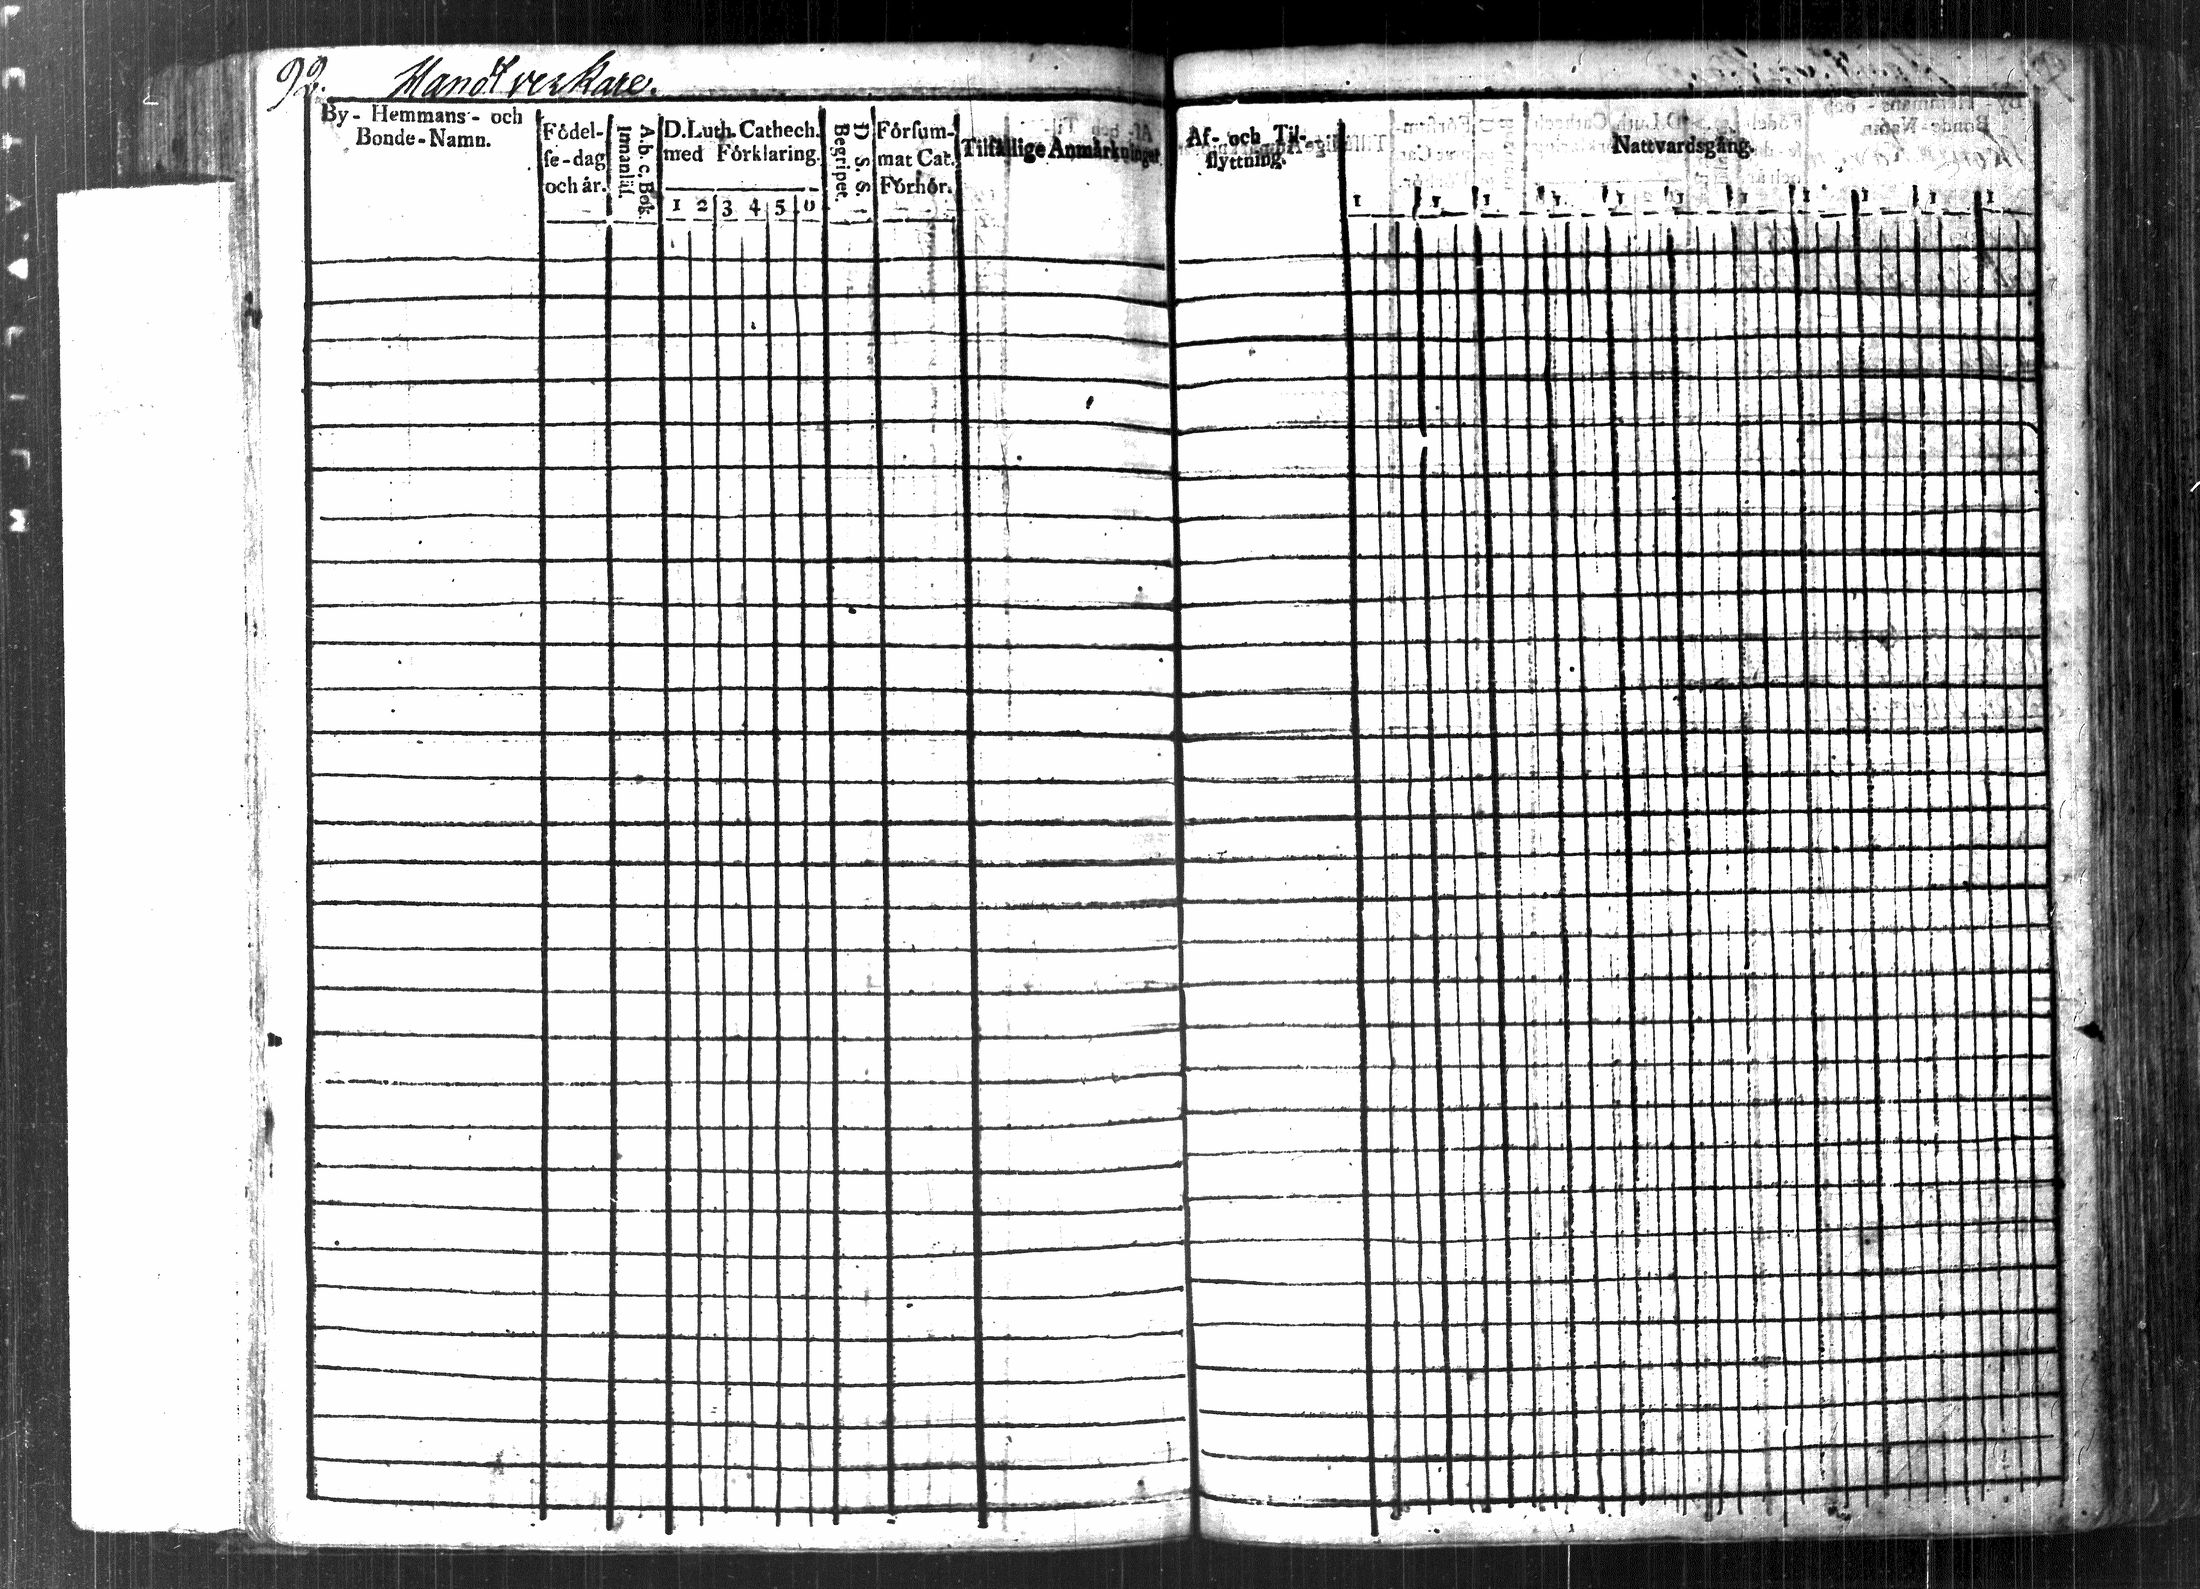 92. Handtverkare.
By- Hemmans- och
Bonde-Namn.
Födel-
se-dag
och år.
A.b.c. Bok.
Innanläs.
D. Luth. Cathech.
med Förklaring.
1 2 3 4 5 6
D. S. S.
Begripet.
Försum-
mat Cat.
Förhör.
Tilfällige Anmärkningar.
Af- och Til-
flyttning.
Nattvardsgång.
1 1 1 1 1 1 1 1 1 1 1